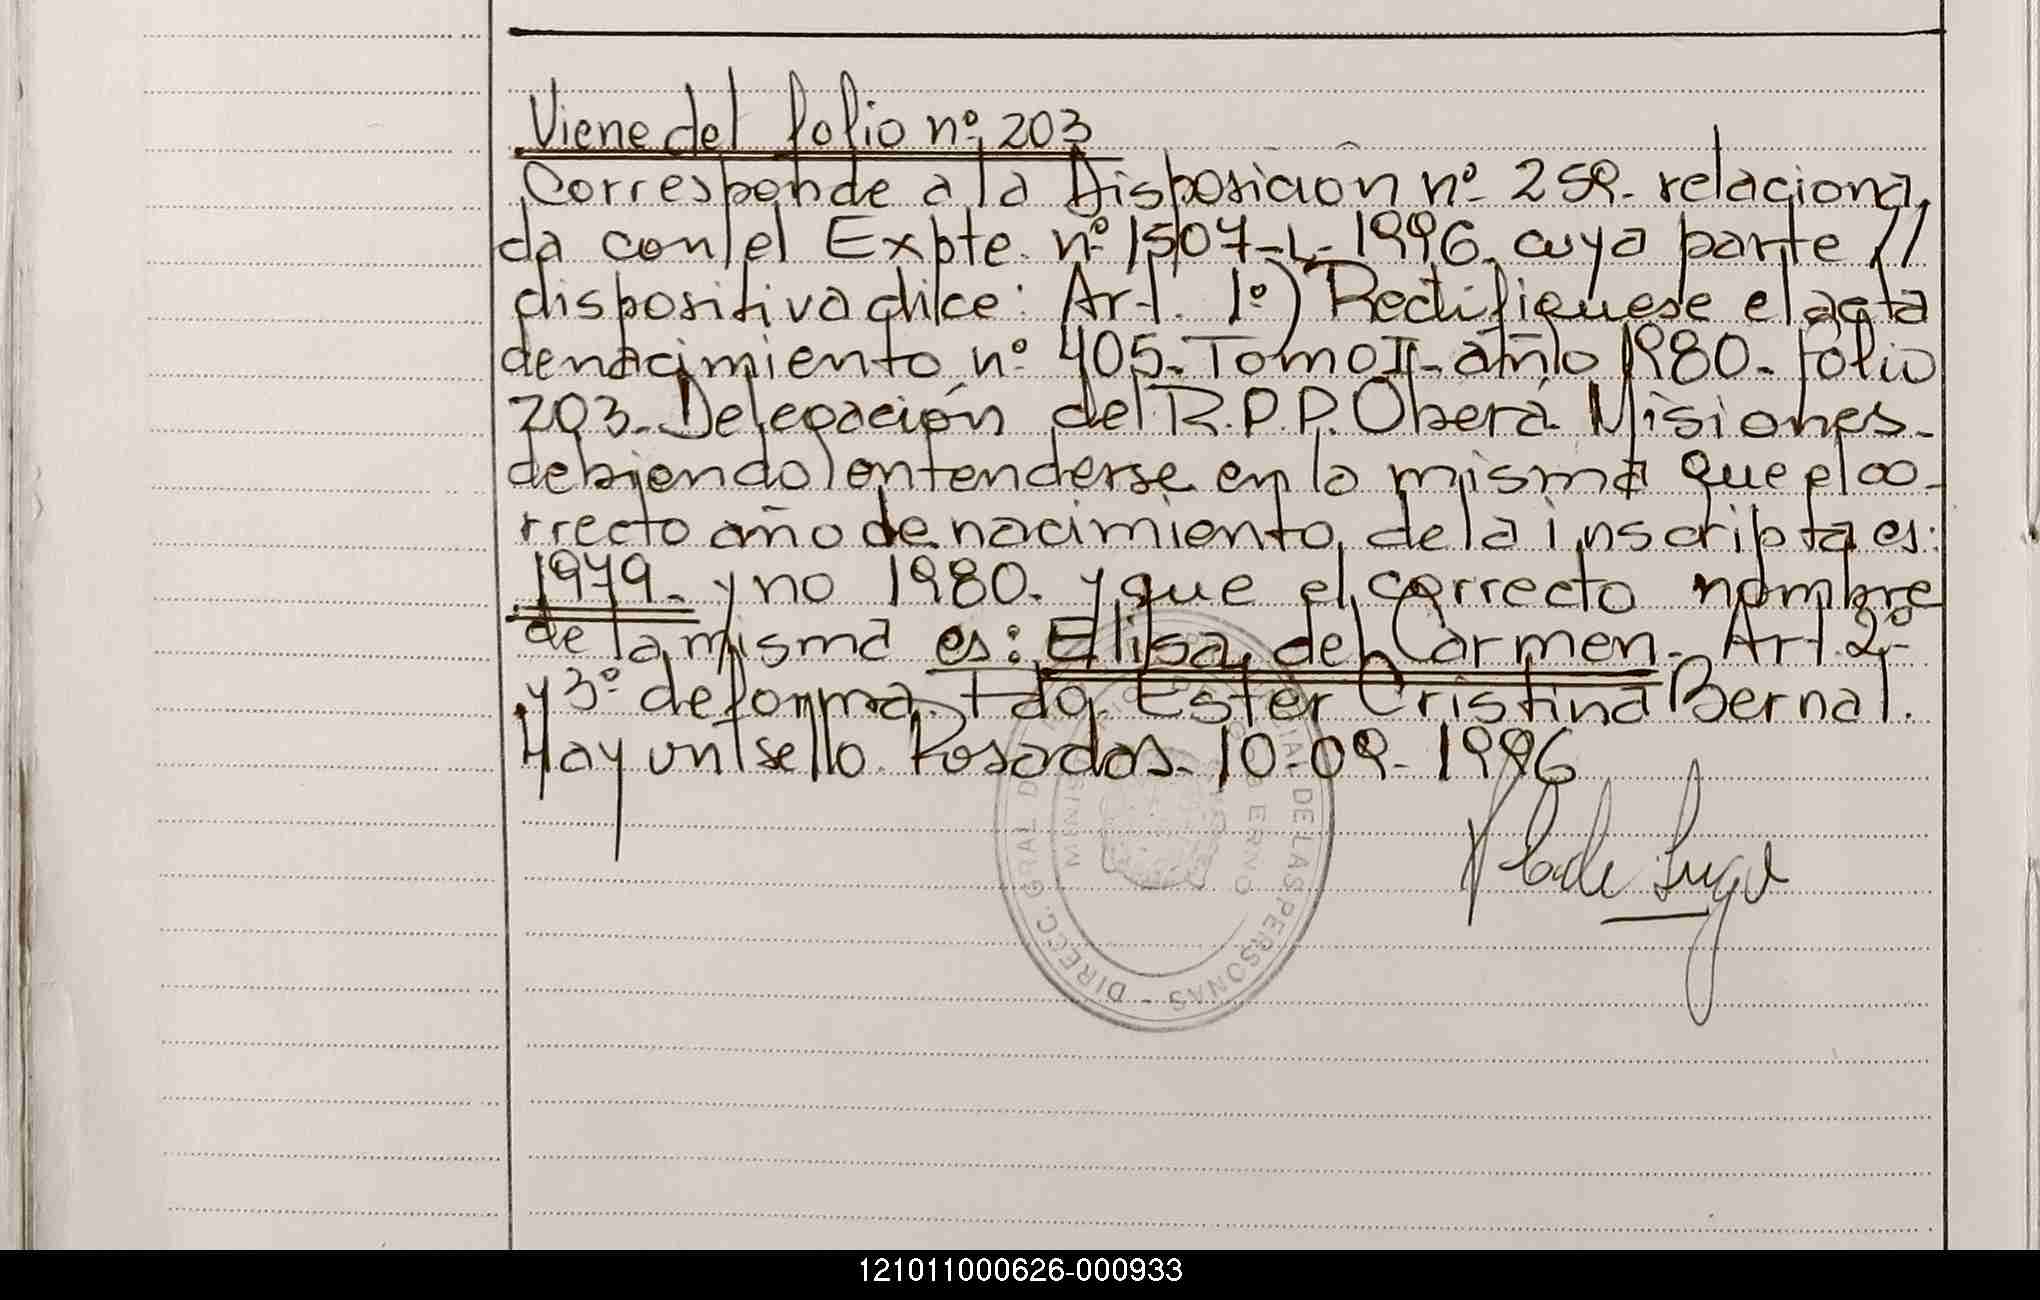 Viene del folio nº 203
Corresponde a la Disposición nº 259- relaciona
da con el Expte. nº 1507-L-1996. cuya parte //
dispositiva dice: Art. 1º) Rectifiquese el acta
de nacimiento nº 405- Tomo II- año 1980- folio
203- Delegación del R.P.P. Oberá Misiones-
debiendo entenderse en la misma que el co-
rrecto año de nacimiento de la inscripta es:
1979- y no 1980- y que el correcto nombre
de la misma es: Elisa del Carmen- Art. 2º
y 3º de forma. Fdo. Ester Cristina Bernal.
Hay un sello. Posadas- 10-09-1996
DIRECC. GRAL DE LAS PERSONAS -
121011000626-000933